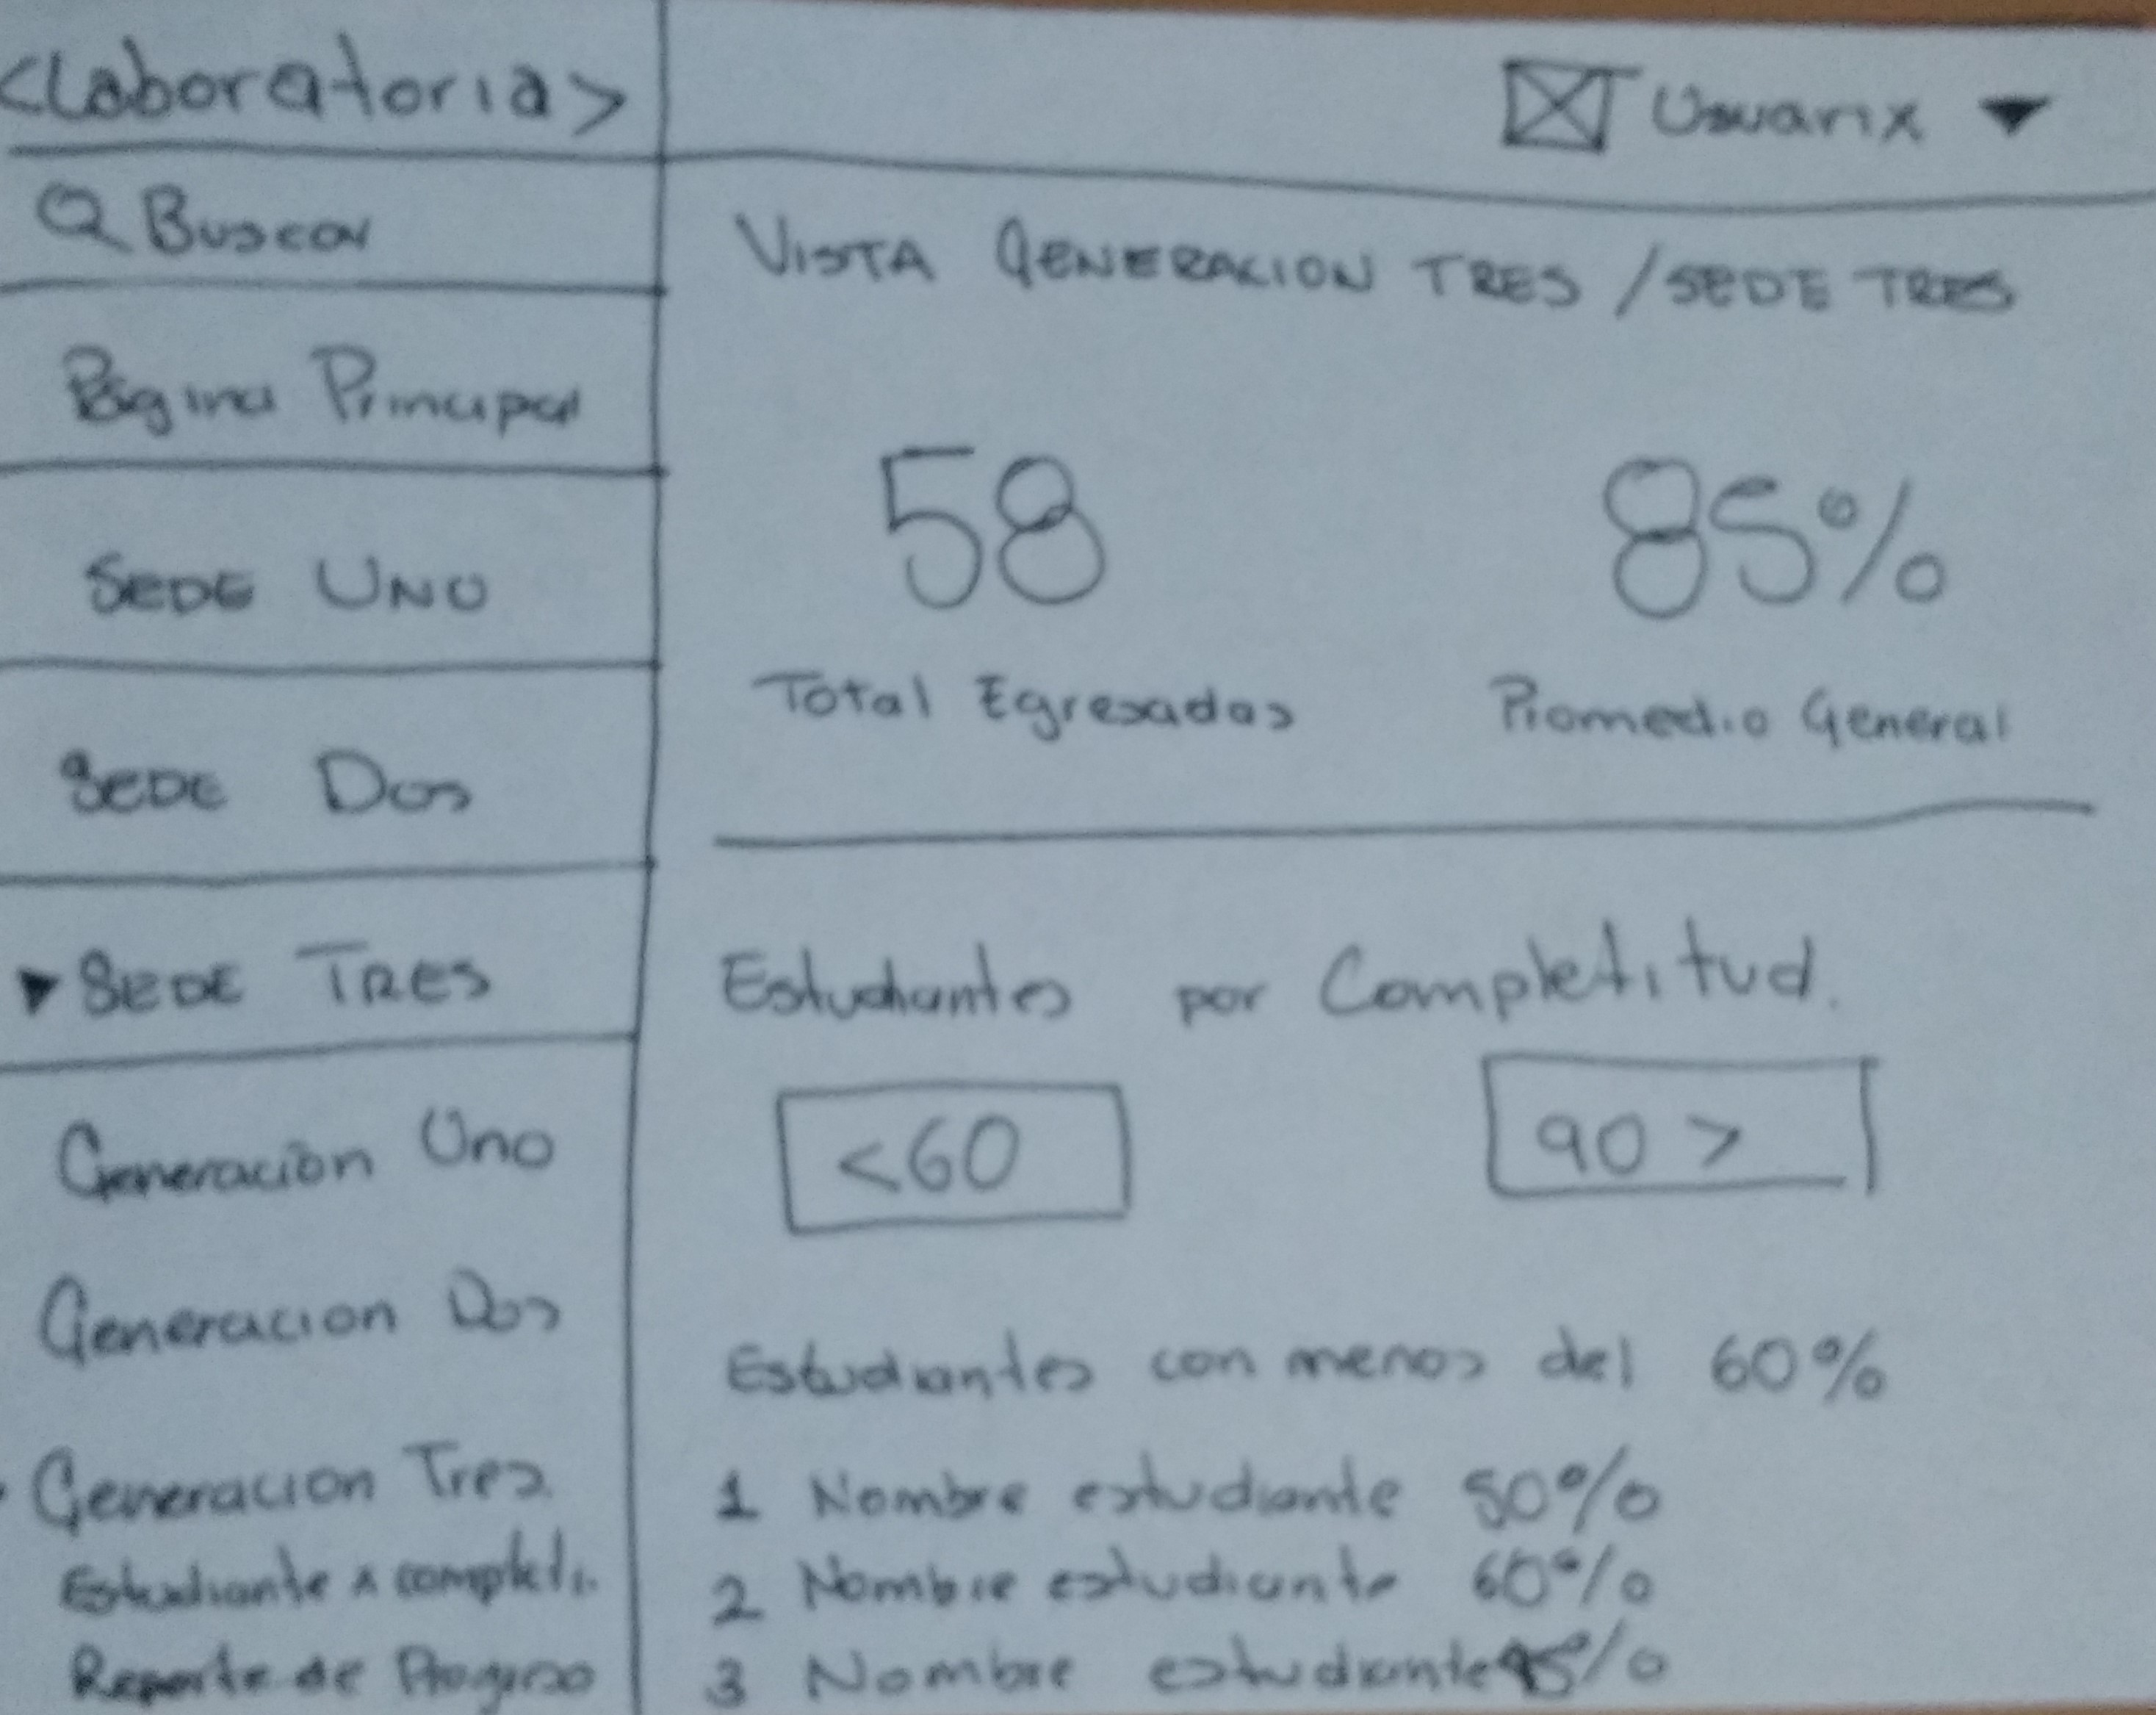 <Laboratoria>
Usuarix
Buscar
Página Principal
SEDE UNO
SEDE Dos
SEDE TRES
Generación Uno
Generacion Dos
Generacion Tres
Estudiante x completi.
Reporte de Progreso
VISTA GENERACION TRES / SEDE TRES
58
85%
Total Egresadas
Promedio General
Estudiantes por Completitud.
<60
90 >
Estudiantes con menos del 60%
1 Nombre estudiante 50%
2 Nombre estudiante 60%
3 Nombre estudiante